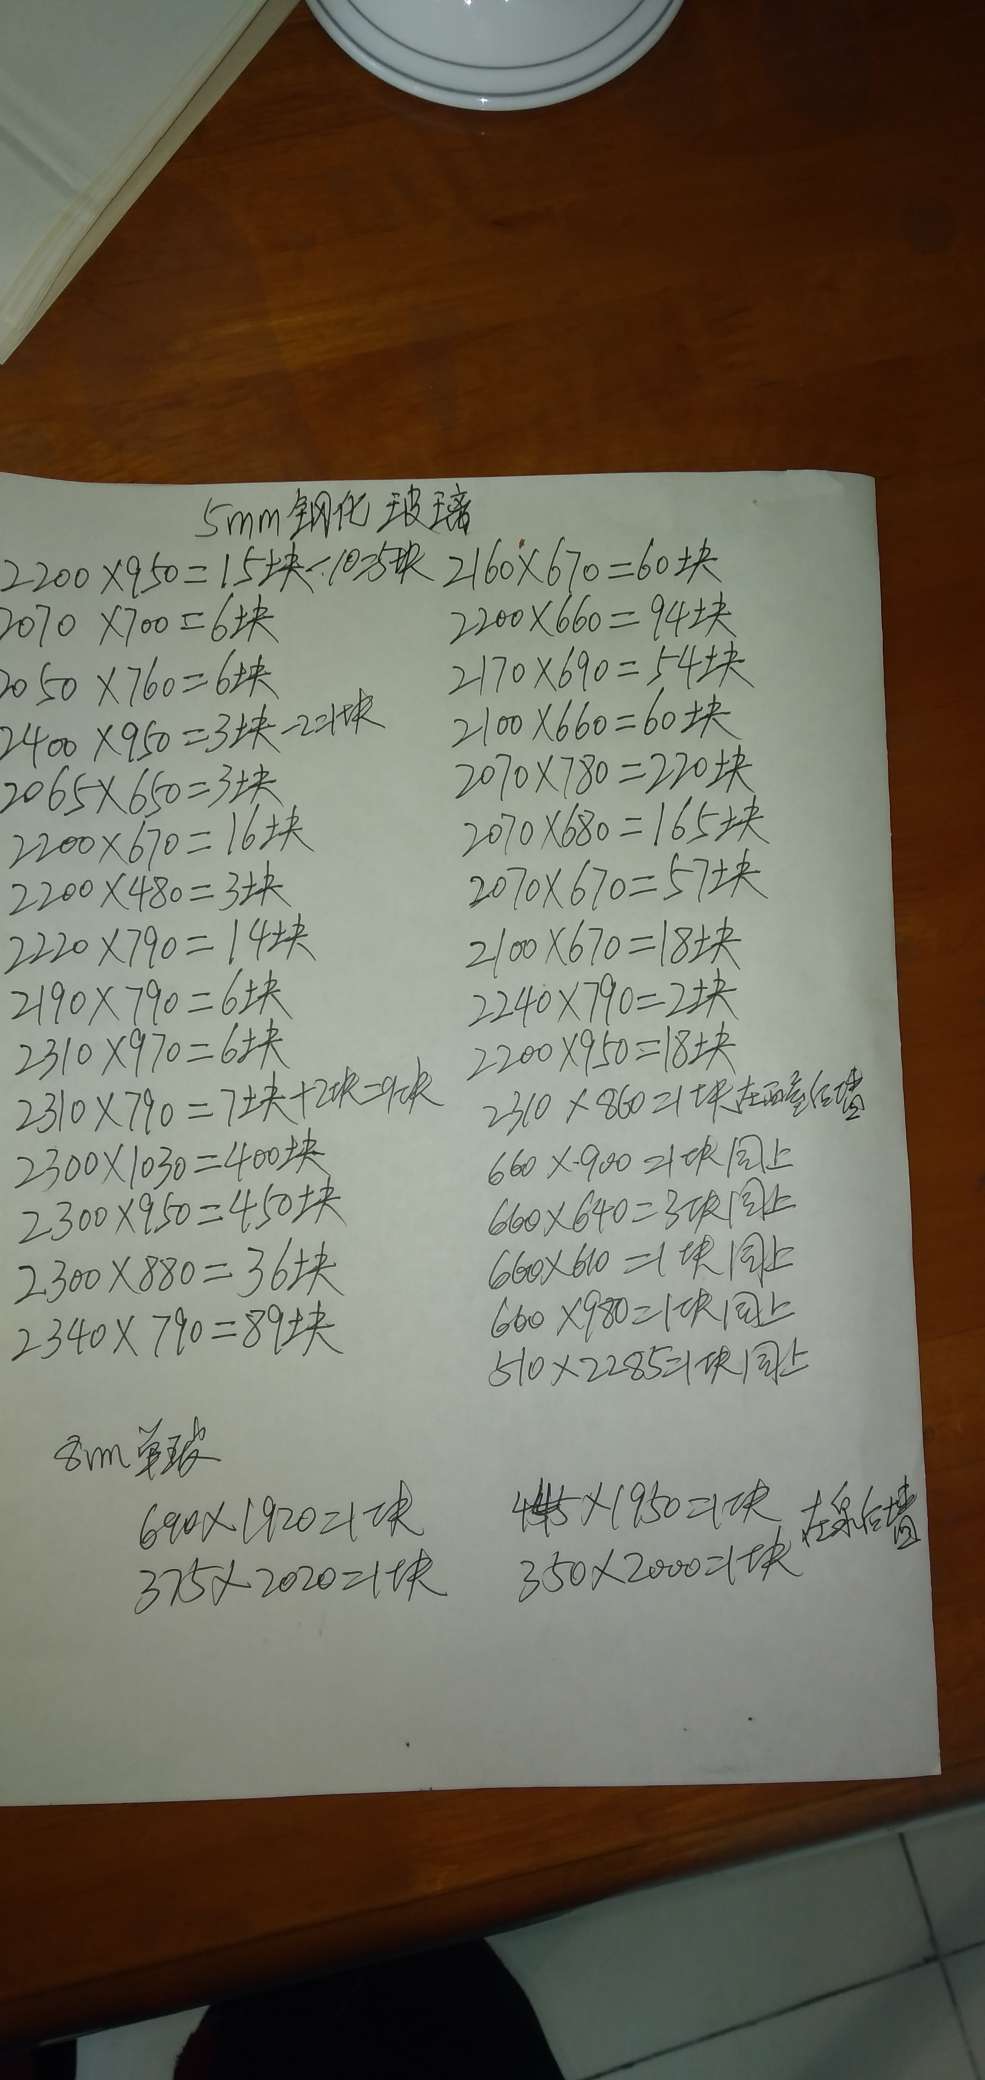 5mm钢化玻璃
2200×950=15块-10=5块
2070×700=6块
2050×760=6块
2400×950=3块-2=1块
2065×650=3块
2200×670=16块
2200×480=3块
2220×790=14块
2190×790=6块
2310×970=6块
2310×790=7块+2块=9块
2300×1030=400块
2300×950=450块
2300×880=36块
2340×790=89块
2160×670=60块
2200×660=94块
2170×690=54块
2100×660=60块
2070×780=220块
2070×680=165块
2070×670=57块
2100×670=18块
2240×790=2块
2200×950=18块
2310×860=1块在西 后墙
660×900=1块同上
660×640=3块同上
660×610=1块同上
660×980=1块同上
510×2285=1块同上
8m单玻
690×1920=1块
375×2020=1块
445×1950=1块
350×2000=1块
在 后墙